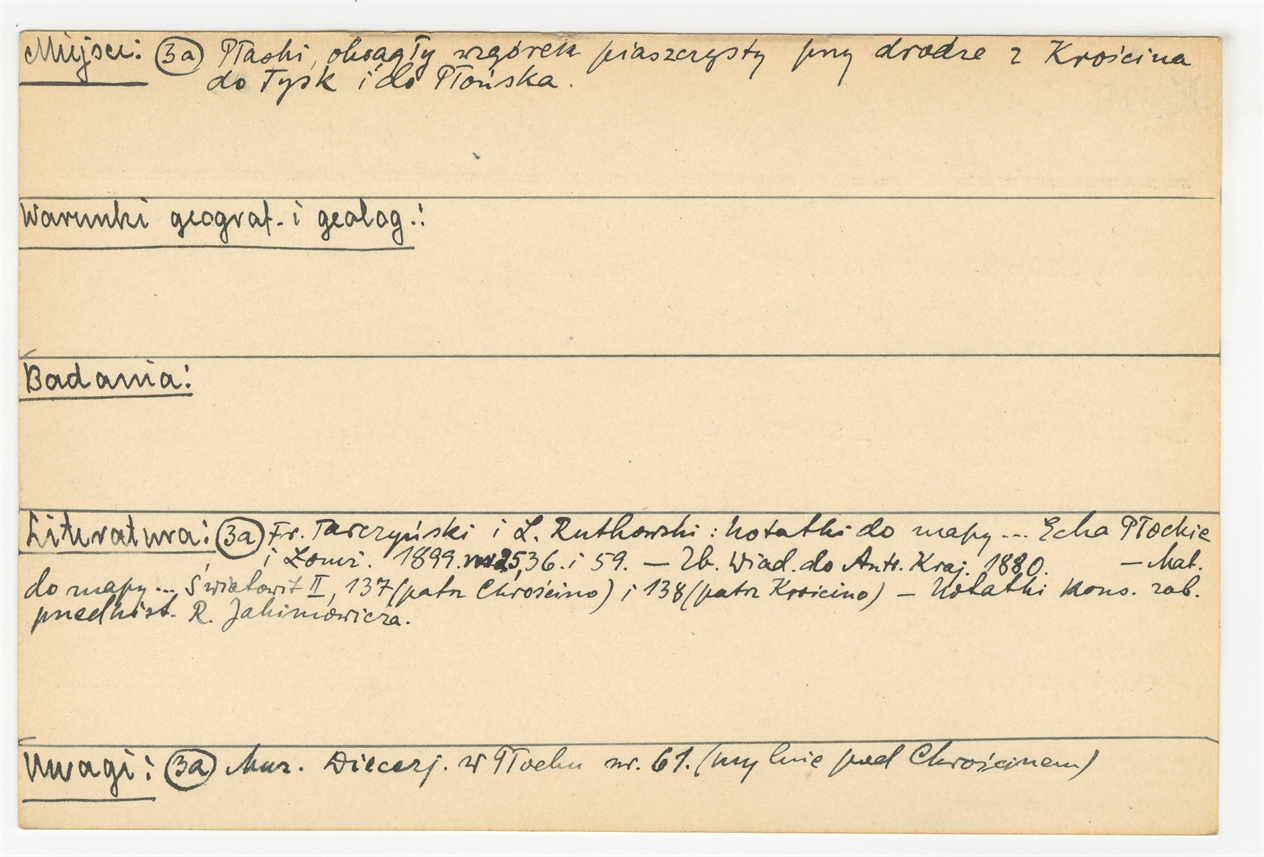 Miejsce: 3a Płaski, okrągły wzgórek piaszczysty przy drodze z Krościna
do Łysk i do Płońska.
Warunki geograf. i geolog.:
Badania:
Literatura: 3a Fr. Tarczyński i L. Rutkowski: Notatki do mapy... Echa Płockie
i Łomż. 1899. nr 25, 36. i 59. — Zb. Wiad. do Antr. Kraj. 1880. — Mat.
do mapy... Światowit II, 137 (patrz Chrościno) i 138 (patrz Krościno) — Notatki kons. zab.
przedhist. R. Jakimowicza.
Uwagi: 3a Muz. Diecezj. w Płocku nr. 61. (mylnie pod Chrościnem)